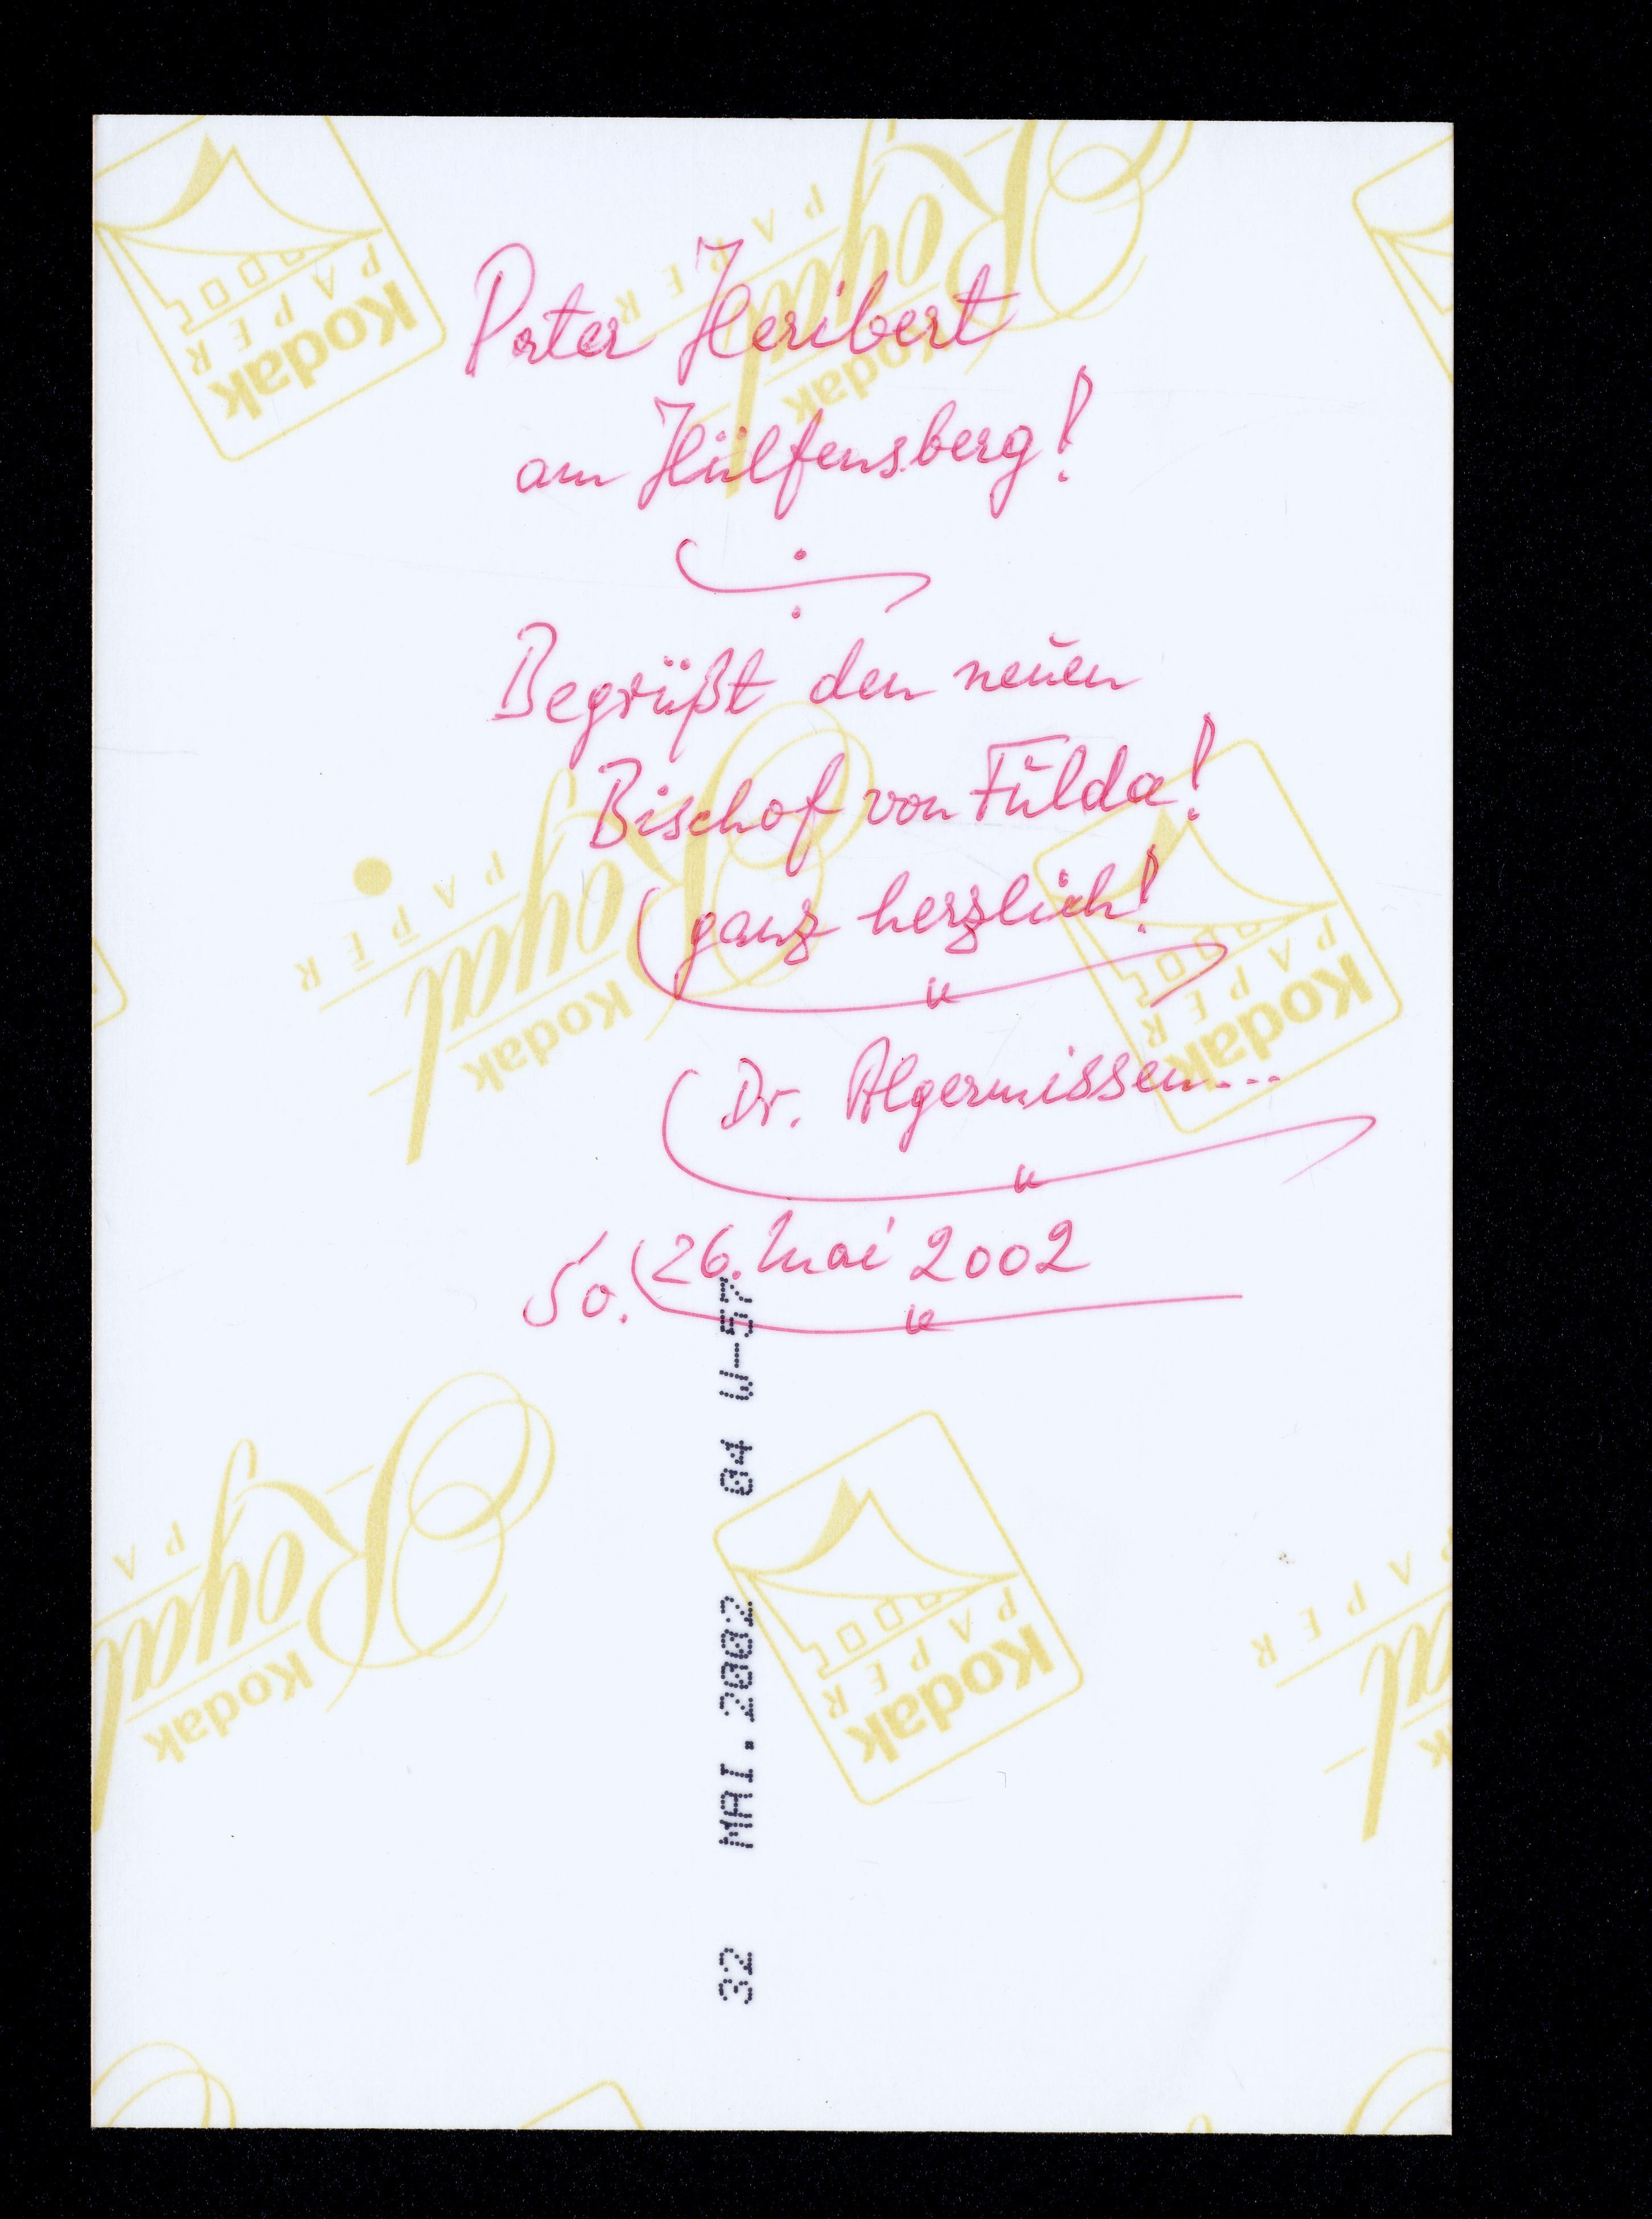 Pater Heribert
am Hülfensberg!
Begrüßt den neuen
Bischof von Fulda!
ganz herzlich!
Dr. Algermissen...
So. 26. Mai 2002
32 MAI.2002 04 W-57
Kodak
PAPER
Kodak
Royal
PAPER
Kodak
Royal
PAPER
Kodak
PAPER
Kodak
Royal
PA
Kodak
PAPER
PAPER